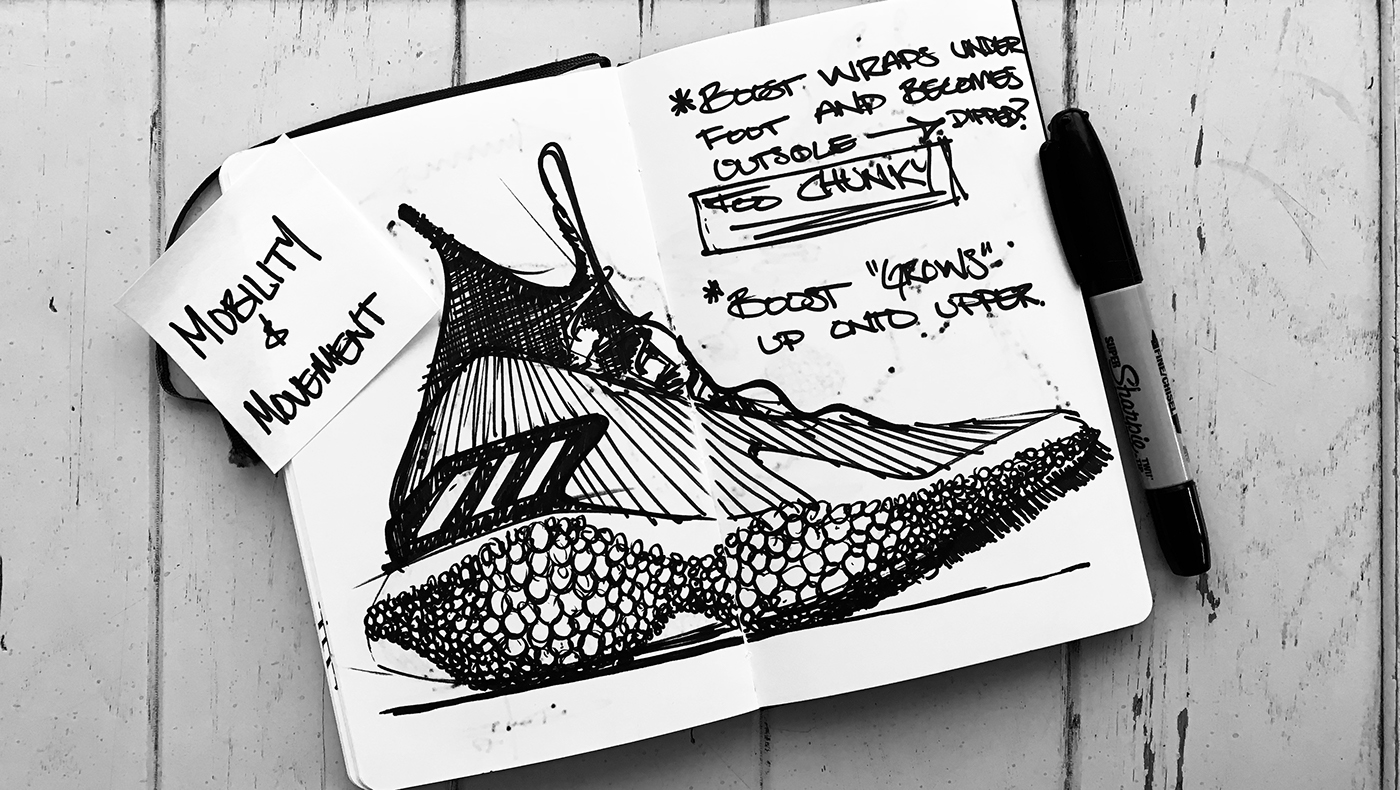 MOBILITY
&
MOVEMENT
*BOOST WRAPS UNDER
FOOT AND BECOMES
OUTSOLE → DIPPED?
TOO CHUNKY
*BOOST "GROWS"
UP ONTO UPPER.
SUPER Sharpie TWIN TIP
FINE/CHISEL